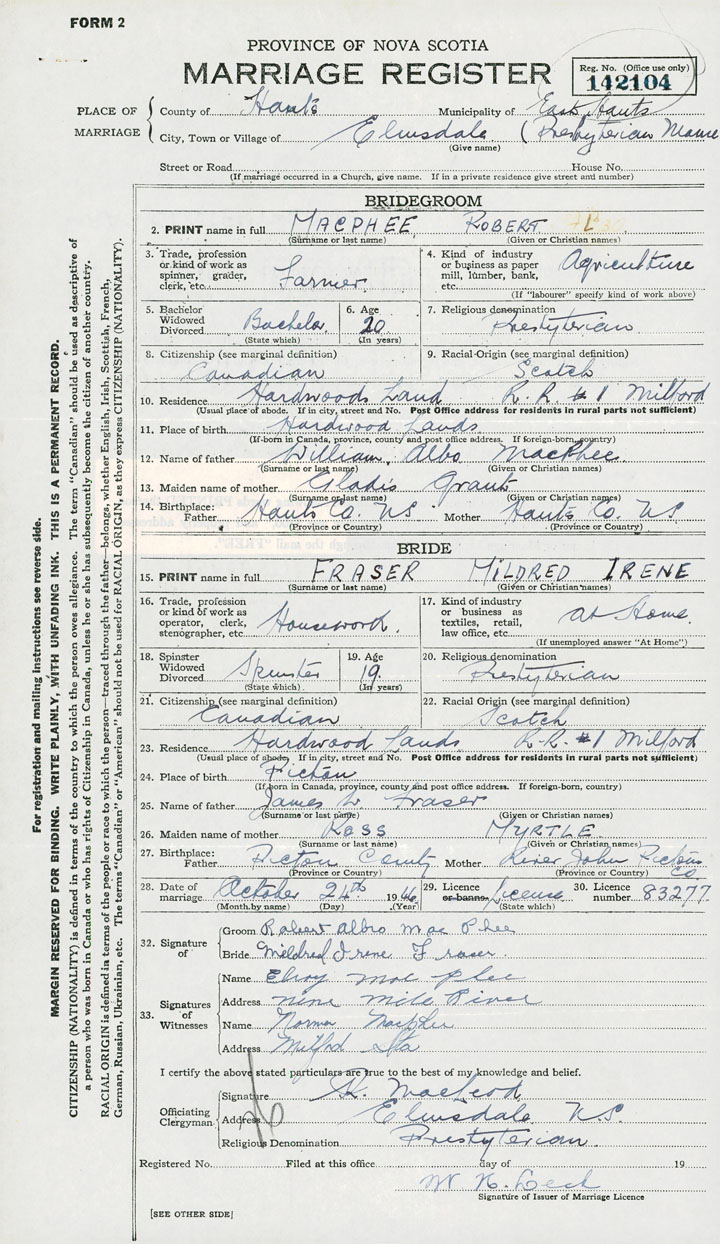 FORM 2
PROVINCE OF NOVA SCOTIA
MARRIAGE REGISTER
Reg. No. (Office use only)
142104
PLACE OF MARRIAGE
County of Hants Municipality of East Hants
City, Town or Village of Elmsdale (Presbyterian Manse
(Give name)
Street or Road House No.
(If marriage occurred in a Church, give name. If in a private residence give street and number)
BRIDEGROOM
2. PRINT name in full MACPHEE ROBERT
(Surname or last name) (Given or Christian names)
3. Trade, profession or kind of work as spinner, grader, clerk, etc. Farmer
4. Kind of industry or business as paper mill, lumber, bank, etc. Agriculture
(If "labourer" specify kind of work above)
5. Bachelor Widowed Divorced Bachelor (State which)
6. Age 20 (In years)
7. Religious denomination Presbyterian
8. Citizenship (see marginal definition) Canadian
9. Racial Origin (see marginal definition) Scotch
10. Residence Hardwoods Land R. R. #1 Milford
(Usual place of abode. If in city, street and No. Post Office address for residents in rural parts not sufficient)
11. Place of birth Hardwood Lands
(If born in Canada, province, county and post office address. If foreign-born, country)
12. Name of father William Albo MacPhee
(Surname or last name) (Given or Christian names)
13. Maiden name of mother Gladis Grant
(Surname or last name) (Given or Christian names)
14. Birthplace: Father Hants Co. N.S. Mother Hants Co. N.S.
(Province or Country) (Province or Country)
BRIDE
15. PRINT name in full FRASER MILDRED IRENE
(Surname or last name) (Given or Christian names)
16. Trade, profession or kind of work as operator, clerk, stenographer, etc. Housework.
17. Kind of industry or business as textiles, retail, law office, etc. at Home.
(If unemployed answer "At Home")
18. Spinster Widowed Divorced Spinster (State which)
19. Age 19. (In years)
20. Religious denomination Presbyterian
21. Citizenship (see marginal definition) Canadian
22. Racial Origin (see marginal definition) Scotch
23. Residence Hardwood Lands R.R. #1 Milford
(Usual place of abode. If in city, street and No. Post Office address for residents in rural parts not sufficient)
24. Place of birth Picton
(If born in Canada, province, county and post office address. If foreign-born, country)
25. Name of father James W Fraser
(Surname or last name) (Given or Christian names)
26. Maiden name of mother ROSS MYRTLE
(Surname or last name) (Given or Christian names)
27. Birthplace: Father Picton County Mother River John Picton Co
(Province or Country) (Province or Country)
28. Date of marriage October 24th 1946
(Month by name) (Day) (Year)
29. Licence or banns License (State which)
30. Licence number 83277
32. Signature of
Groom Robert Albro Mac Phee
Bride Mildred Irene Fraser
33. Signatures of Witnesses
Name Elroy Mac phee
Address nine mile River
Name Norma MacPhee
Address Milford Sta
I certify the above stated particulars are true to the best of my knowledge and belief.
Officiating Clergyman
Signature K. MacLeod
Address Elmsdale N.S.
Religious Denomination Presbyterian.
Registered No. Filed at this office day of 19
Signature of Issuer of Marriage Licence
[SEE OTHER SIDE]
For registration and mailing instructions see reverse side.
MARGIN RESERVED FOR BINDING. WRITE PLAINLY, WITH UNFADING INK. THIS IS A PERMANENT RECORD.
CITIZENSHIP (NATIONALITY) is defined in terms of the country to which the person owes allegiance. The term "Canadian" should be used as descriptive of
a person who was born in Canada or who has rights of Citizenship in Canada, unless he or she has subsequently become the citizen of another country.
RACIAL ORIGIN is defined in terms of the people or race to which the person—traced through the father—belongs, whether English, Irish, Scottish, French,
German, Russian, Ukrainian, etc. The terms "Canadian" or "American" should not be used for RACIAL ORIGIN, as they express CITIZENSHIP (NATIONALITY).